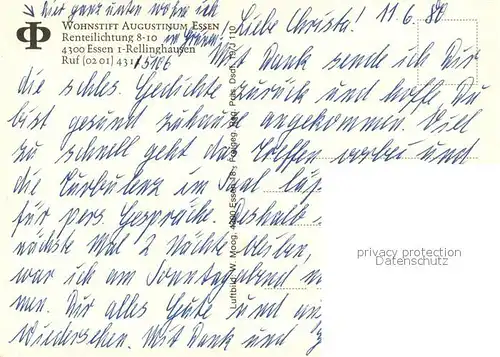 Hier ganz unten wohne ich
im Grünen!
WOHNSTIFT AUGUSTINUM ESSEN
Renteilichtung 8-10
4300 Essen 1-Rellinghausen
Ruf (02 01) 431/5106
11.6.80
Liebe Christa!
Mit Dank sende ich Dir
die schles. Gedichte zurück und hoffe, Du
bist gesund zuhause angekommen. Viel
zu schnell geht das Treffen vorbei und
die Turbulenz im Saal läß
für pers. Gespräche. Deshalb
nächste Mal 2 Nächte bleiben,
war ich am Sonntagabend
men. Dir alles Gute und
Wiedersehen. Mit Dank und
Luftbild: W. Moog, 4300 Essen 18, Freigeg. Reg. Präs. Dsdf. 19/J 110
privacy protection
Datenschutz